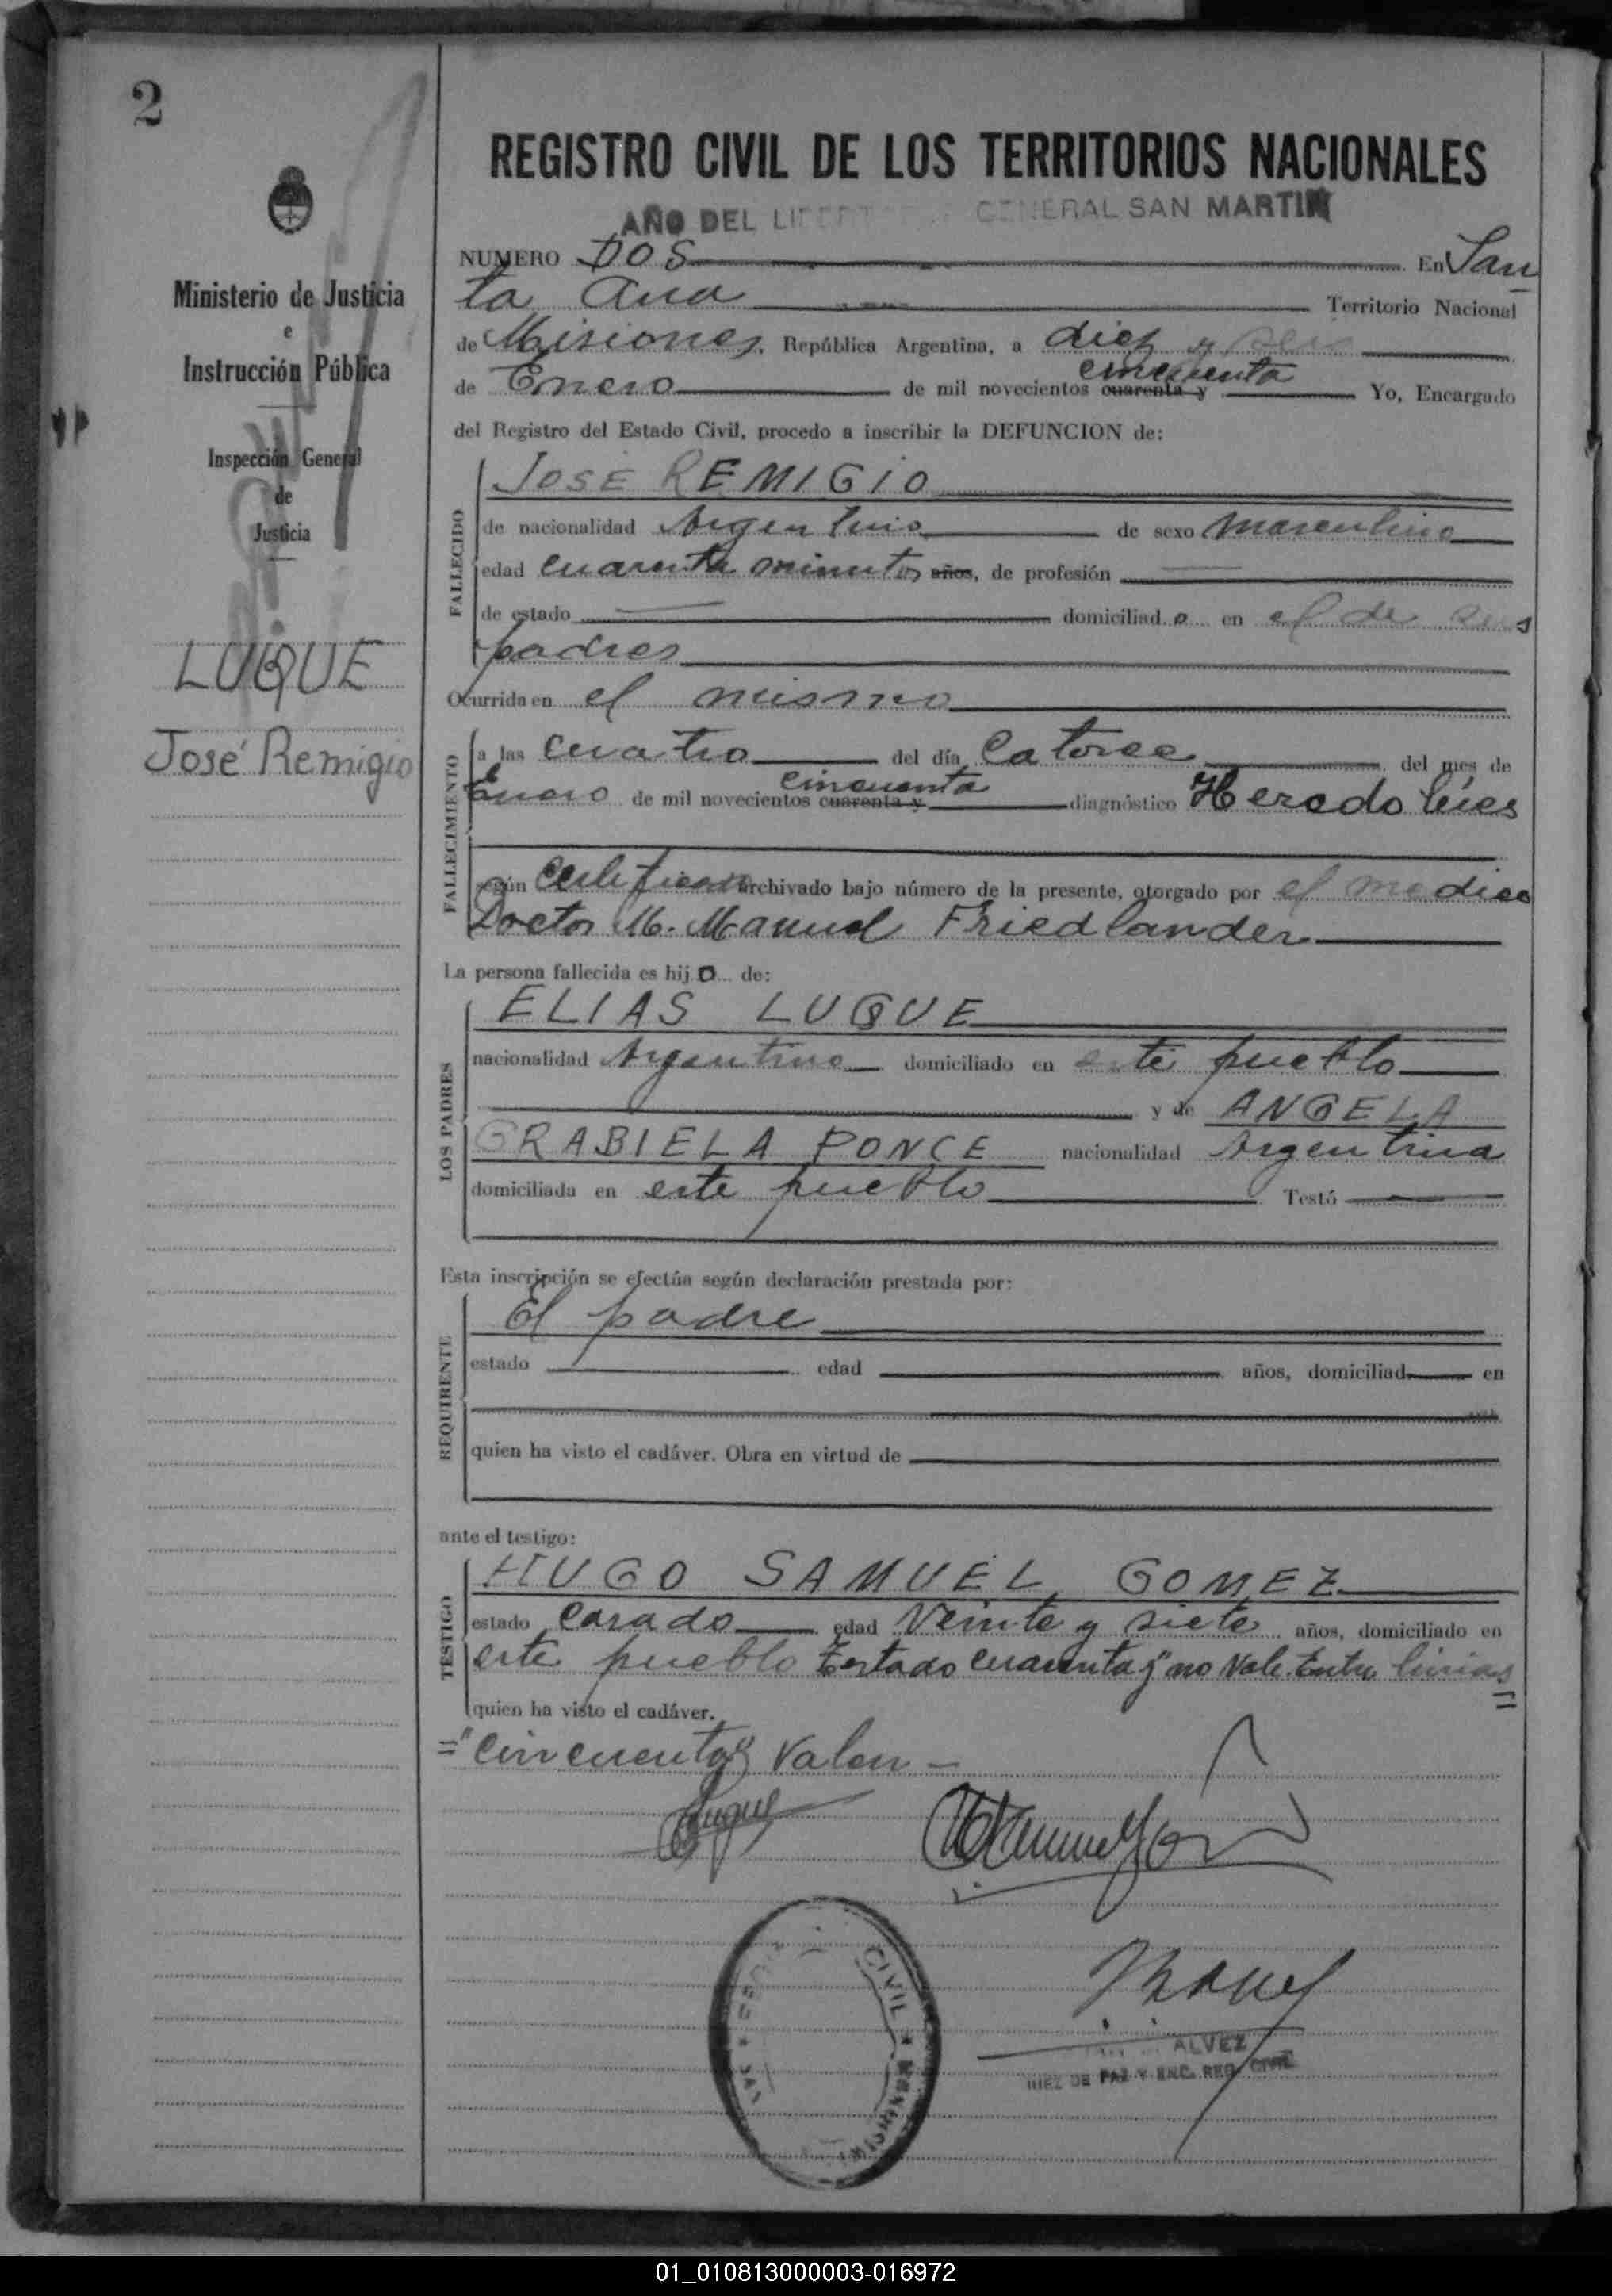 2
REGISTRO CIVIL DE LOS TERRITORIOS NACIONALES
AÑO DEL LIBERTADOR GENERAL SAN MARTIN
Ministerio de Justicia
e
Instrucción Pública
Inspección General
de
Justicia
LUQUE
José Remigio
NUMERO DOS En San
ta Ana Territorio Nacional
de Misiones, República Argentina, a diez y seis
cincuenta
de Enero de mil novecientos cuarenta y Yo, Encargado
del Registro del Estado Civil, procedo a inscribir la DEFUNCION de:
FALLECIDO
JOSÉ REMIGIO
de nacionalidad Argentino de sexo masculino
edad cuarenta minutos años, de profesión
de estado domiciliad o en el de sus
padres
Ocurrida en el mismo
FALLECIMIENTO
a las cuatro del día Catorce del mes de
cincuenta
Enero de mil novecientos cuarenta y diagnóstico Heredo lúes
según certificado archivado bajo número de la presente, otorgado por el medico
Doctor M. Manuel Friedlander
La persona fallecida es hij o de:
LOS PADRES
ELIAS LUQUE
nacionalidad Argentino domiciliado en este pueblo
y de ANGELA
GRABIELA PONCE nacionalidad Argentina
domiciliada en este pueblo Testó
Esta inscripción se efectúa según declaración prestada por:
REQUIRENTE
El padre
estado edad años, domiciliad en
quien ha visto el cadáver. Obra en virtud de
ante el testigo:
TESTIGO
HUGO SAMUEL GOMEZ
estado Casado edad Veinte y siete años, domiciliado en
este pueblo Testado cuarenta y" no Vale. Entre linias
quien ha visto el cadáver.
="cincuenta" Valen -
Luque
CIVIL
MISIONES
ALVEZ
JUEZ DE PAZ Y ENC. REG. CIVIL
01_010813000003-016972